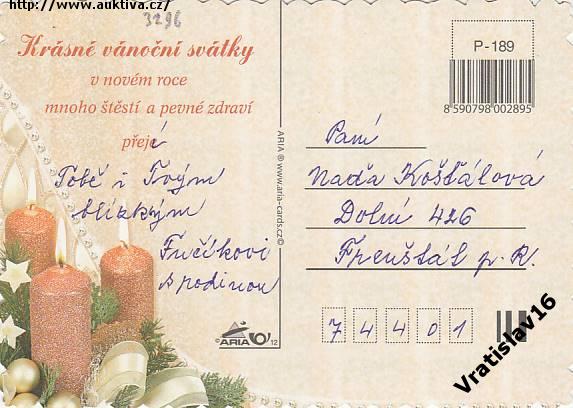 http://www.auktiva.cz/
3296
Krásné vánoční svátky
v novém roce
mnoho štěstí a pevné zdraví
přejí
Tobě i Tvým
blízkým
Fučíkovi
s rodinou
P-189
8 590798 002895
ARIA ® www.aria-cards.cz ©
Paní
Naďa Košťálová
Dolní 426
Frenštát p. R.
74401
©ARIA 12
Vratislav16